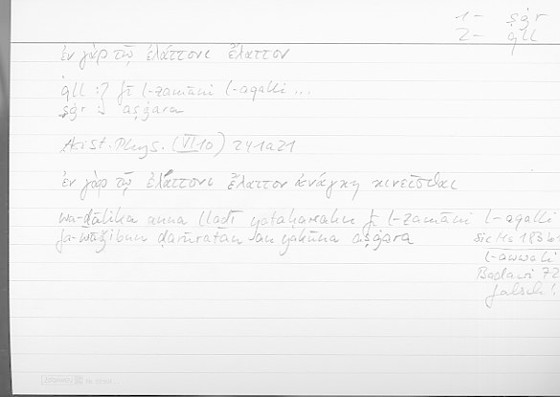 1 – ṣġr
2 – qll
ἐν γὰρ τῷ ἐλάττονι ἔλαττον
qll : fī l-zamāni l-aqalli ...
ṣġr : aṣġara
Arist. Phys. (VI 10) 241a21
ἐν γὰρ τῷ ἐλάττονι ἔλαττον ἀνάγκη κινεῖσθαι
wa-ḏālika anna llaḏī yataḥarraku fī l-zamāni l-aqalli
fa-wāǧibun ḍarūratan an yakūna aṣġara
sic Ms 183
l-awwali
Badawi 72
falsch!